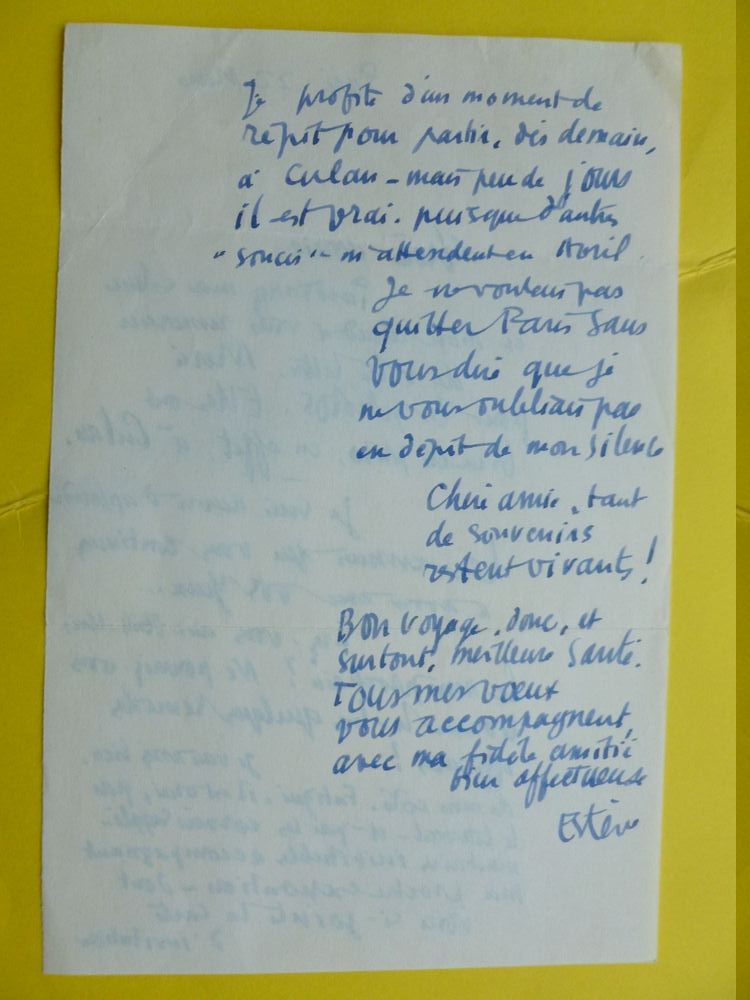 Je profite d'un moment de
répit pour partir, dès demain,
à Culan - mais peu de jours
il est vrai. puisque d'autres
"soucis" m'attendent en Avril.
Je ne voulais pas
quitter Paris sans
vous dire que je
ne vous oubliais pas
en dépit de mon silence
Chère amie, tant
de souvenirs
restent vivants !
Bon voyage, donc, et
surtout, meilleure santé.
Tous mes vœux
vous accompagnent,
avec ma fidèle amitié
bien affectueuse
Estève